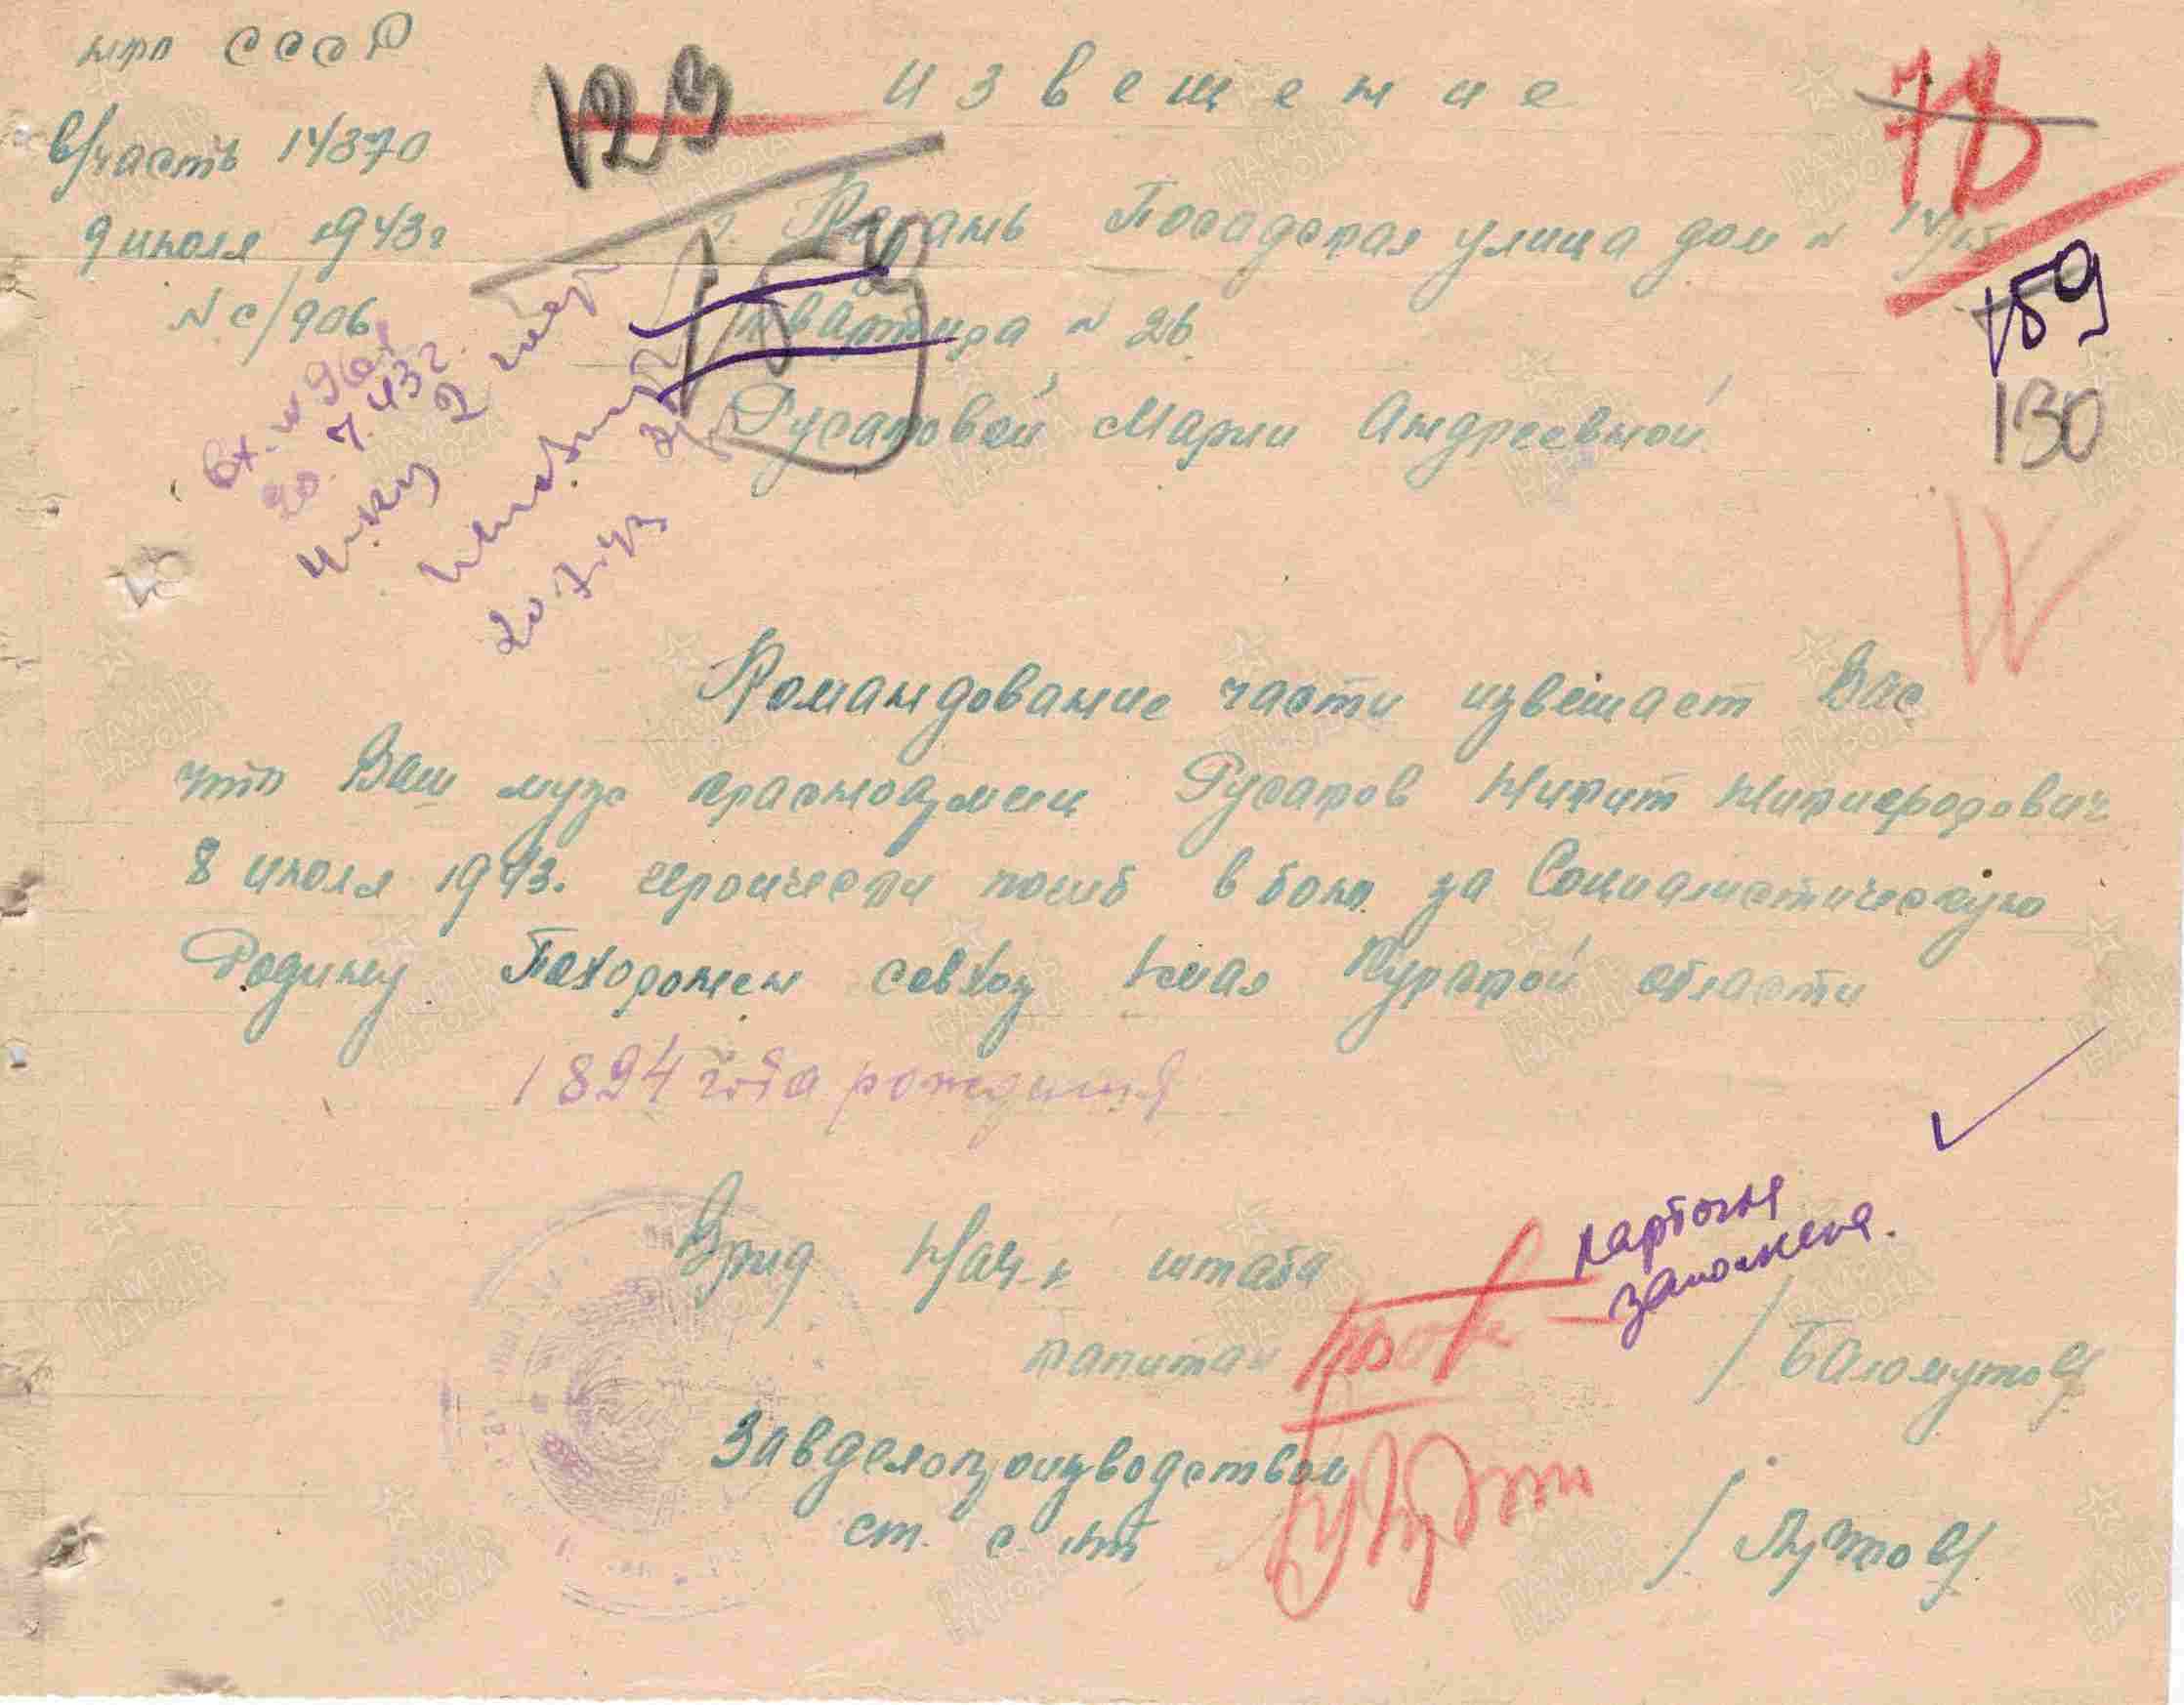 нко СССР
в/часть 14370
9 июля 1943г
N с/906
Извещение
г. Казань Посадская улица дом N
квартира N 26
Русаковой Марии Андреевной
129
78
159
130
Вх. N 961
20.7.43г.
20.7.43
Командование части извещает Вас
что Ваш муж красноармеец Русаков Никит Никифорович
8 июля 1943. героически погиб в бою за Социалистическую
Родину Похоронен совхоз 1 мая Курской области
1894 года рождения
Врид Нач-к штаба
капитан /Баломутов/
карточка
заполнена.
Завделопроизводством
ст. с-нт /Лутов/